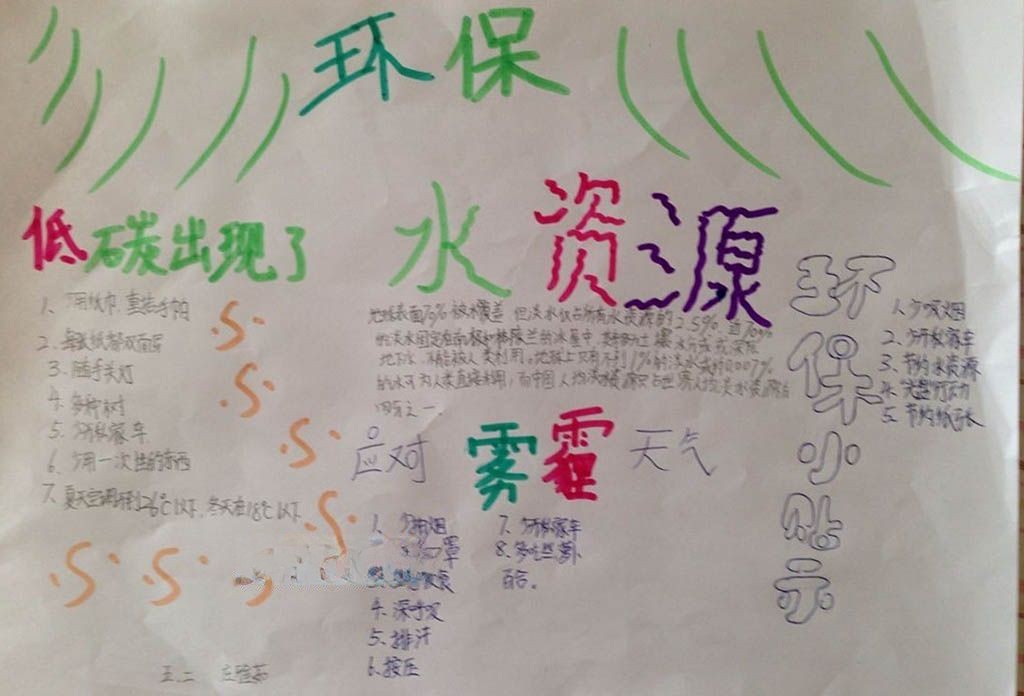 环保
低碳出现了
1、少用纸巾,重拾手帕
2、每张纸都双面
3、随手关灯
4、多种树
5、少开私家车
6、少用一次性的东西
7、夏天空调开到26℃以下,冬天在18℃以下
水资源
地球表面70%被水覆盖,但淡水仅占所有水资源的2.5%,近70%
的淡水固定在南极和格陵兰的冰层中,其余多为土壤水分或深层
地下水,不能被人类利用。地球上只有不到1%的淡水或约0.007%
的水可为人类直接利用,而中国人均淡水资源只占世界人均淡水资源的
四分之一。
应对雾霾天气
1、少抽烟
口罩
饮食
4、深呼吸
5、排汗
6、按压
7、少开私家车
8、多吃萝卜
百合。
环保小贴示
1、少吸烟
2、少开私家车
3、节约水资源
4、光盘行动
5、节约纸张
五、二